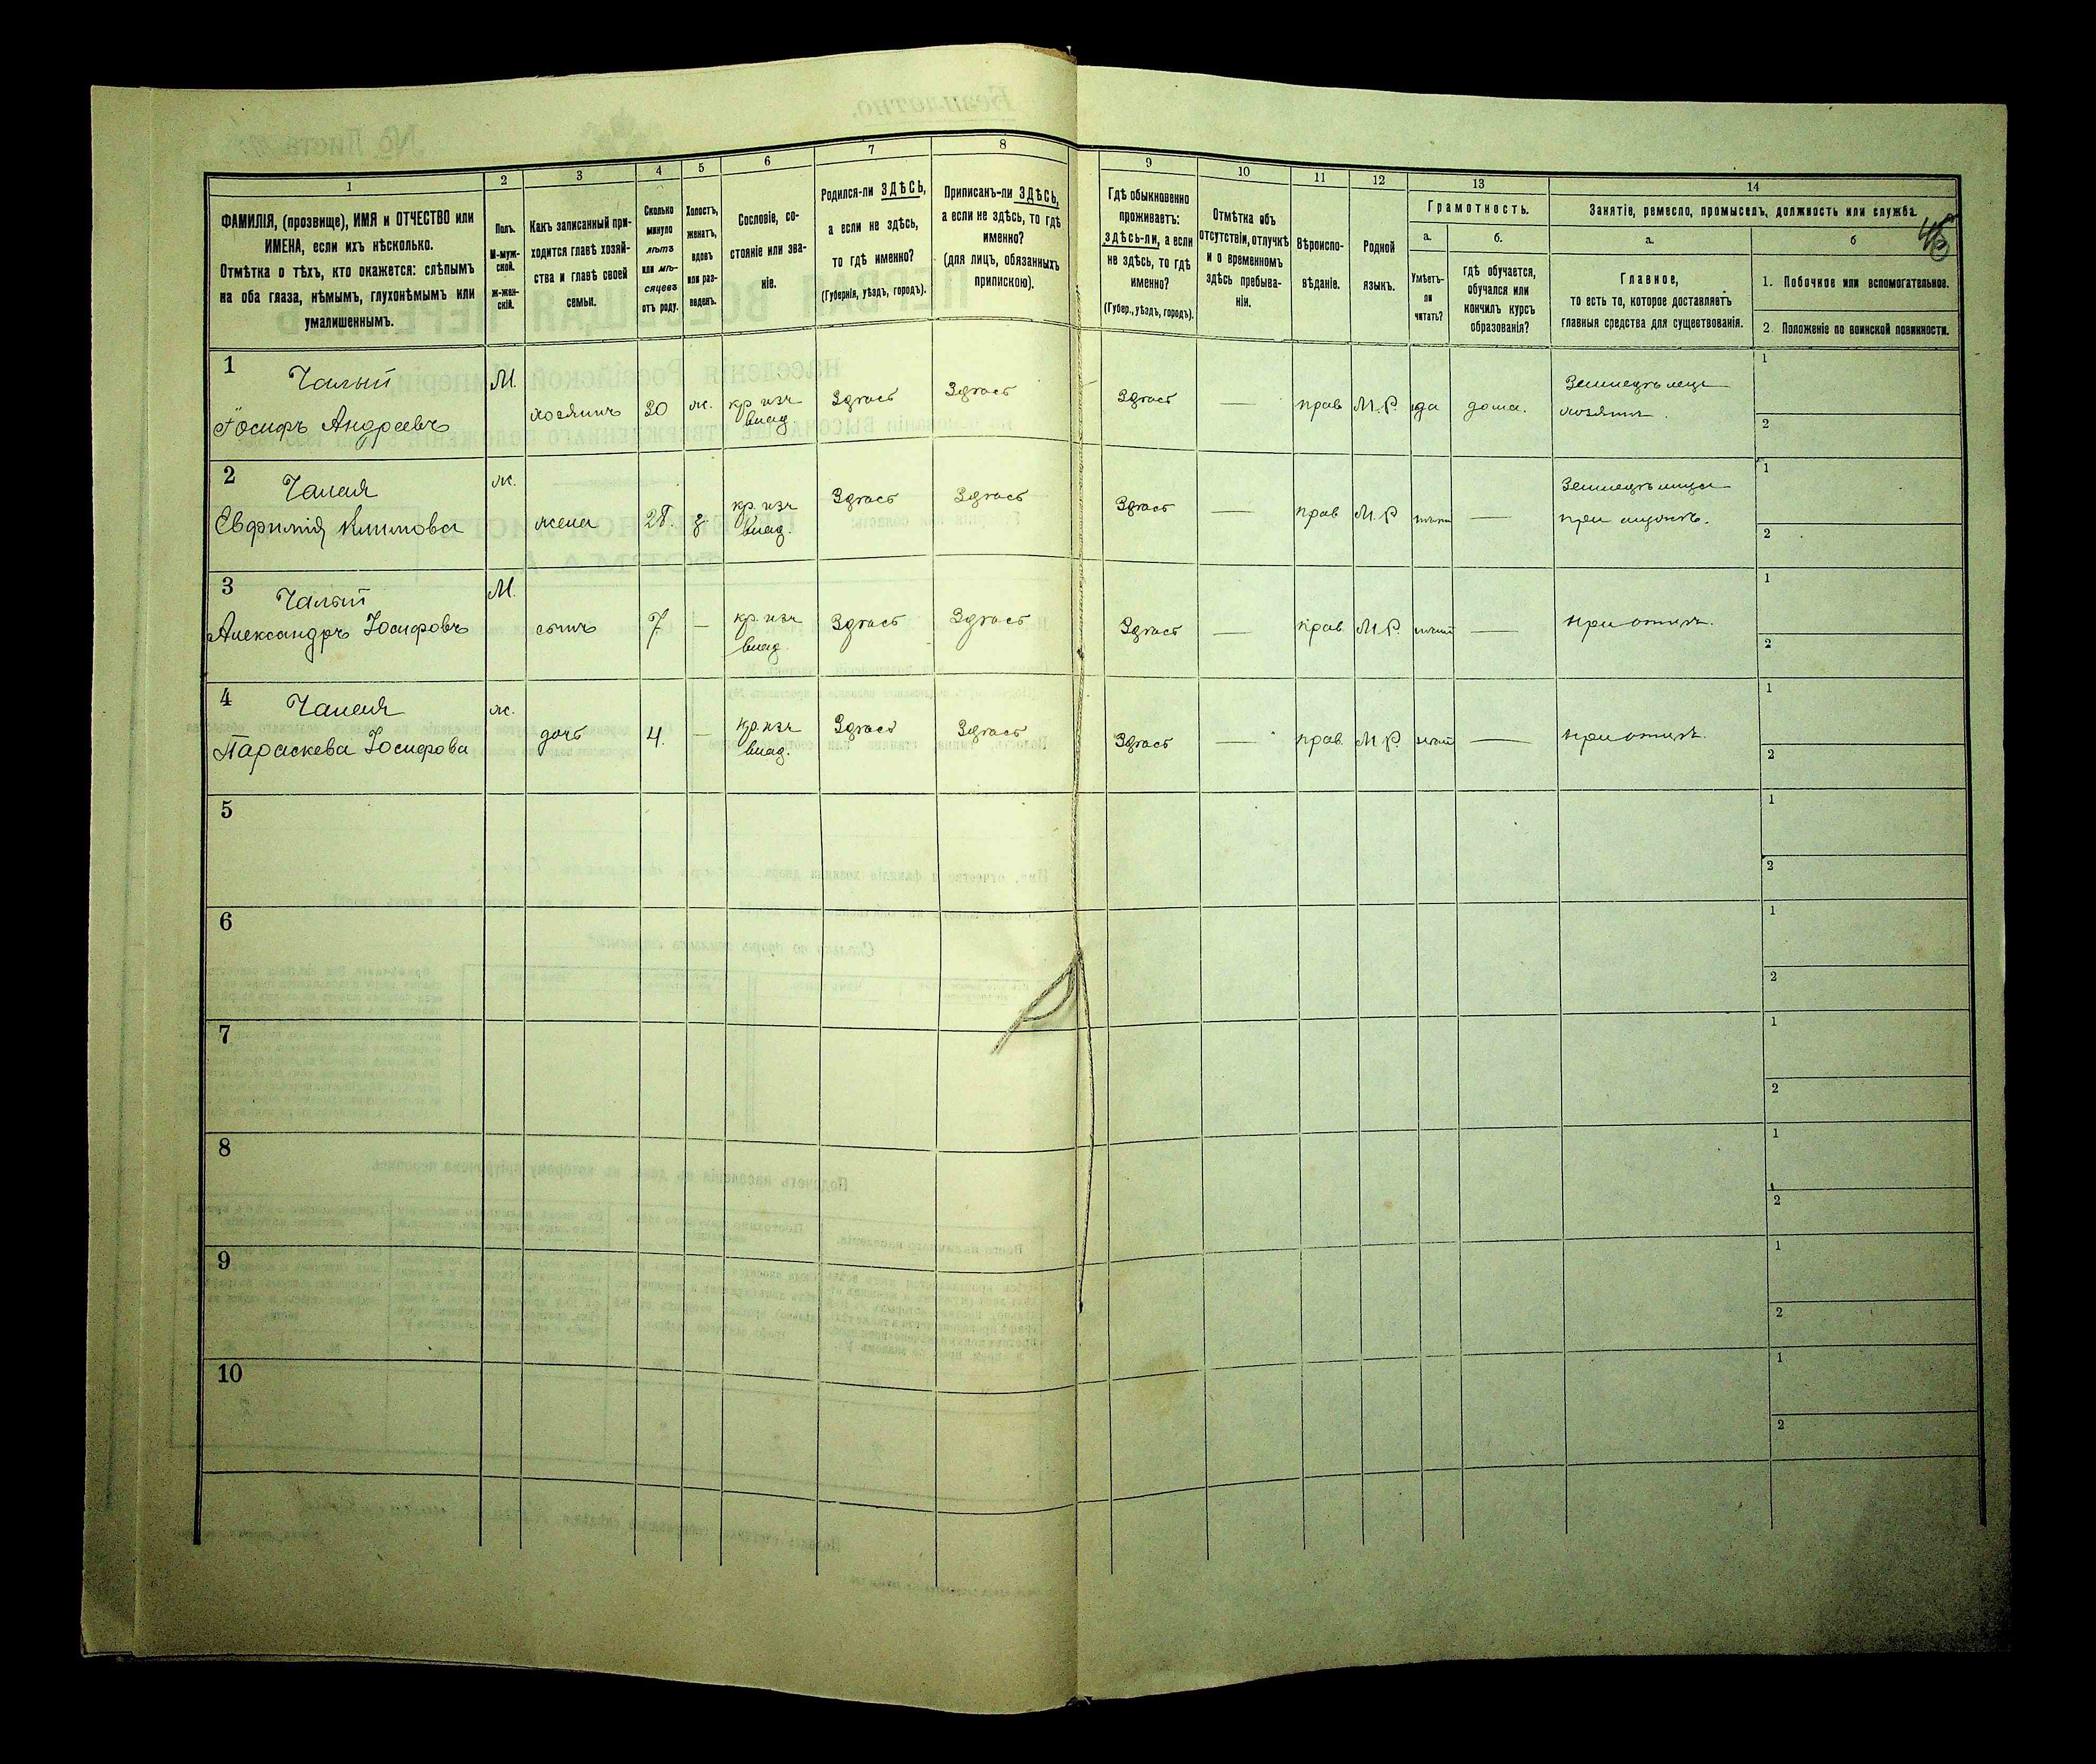 1
2
3
4
5
6
7
8
9
10
11
12
13
14
ФАМИЛІЯ, (прозвище), ИМЯ и ОТЧЕСТВО или
ИМЕНА, если ихъ нѣсколько.
Отмѣтка о тѣхъ, кто окажется: слѣпымъ
на оба глаза, нѣмымъ, глухонѣмымъ или
умалишеннымъ.
Полъ.
М-муж-
ской.
ж-жен-
скій.
Какъ записанный при-
ходится главѣ хозяй-
ства и главѣ своей
семьи.
Сколько
минуло
лѣтъ
или мѣ-
сяцевъ
отъ роду.
Холостъ,
женатъ,
вдовъ
или раз-
веденъ.
Сословіе, со-
стояніе или зва-
ніе.
Родился-ли ЗДѢСЬ,
а если не здѣсь,
то гдѣ именно?
(Губернія, уѣздъ, городъ).
Приписанъ-ли ЗДѢСЬ,
а если не здѣсь, то гдѣ
именно?
(для лицъ, обязанныхъ
припискою).
Гдѣ обыкновенно
проживаетъ:
здѣсь-ли, а если
не здѣсь, то гдѣ
именно?
(Губер., уѣздъ, городъ).
Отмѣтка объ
отсутствіи, отлучкѣ
и о временномъ
здѣсь пребыва-
ніи.
Вѣроиспо-
вѣданіе.
Родной
языкъ.
Грамотность.
а.
Умѣетъ-
ли
читать?
б.
гдѣ обучается,
обучался или
кончилъ курсъ
образованія?
Занятіе, ремесло, промыселъ, должность или служба.
а.
Главное,
то есть то, которое доставляетъ
главныя средства для существованія.
б
1. Побочное или вспомогательное.
2. Положеніе по воинской повинности.
1
Чалый
Іосифъ Андреевъ
М.
хозяинъ
30
ж.
кр. изъ
влад.
Здѣсь
Здѣсь
Здѣсь
—
прав
М.Р.
да
дома.
Земледѣлецъ
хозяинъ.
1
2
2
Чалая
Евфимія Климова
ж.
жена
28.
з.
кр. изъ
влад.
Здѣсь
Здѣсь
Здѣсь
—
прав
М.Р
—
Земледѣлица
при мужѣ.
1
2
3
Чалый
Александръ Іосифовъ
М.
сынъ
7
—
кр. изъ
влад.
Здѣсь
Здѣсь
Здѣсь
—
прав.
М.Р.
—
при отцѣ.
1
2
4
Чалая
Параскева Іосифова
ж.
дочь
4.
—
кр. изъ
влад.
Здѣсь
Здѣсь
Здѣсь
—
прав.
М.Р.
—
при отцѣ.
1
2
5
1
2
6
1
2
7
1
2
8
1
2
9
1
2
10
1
2